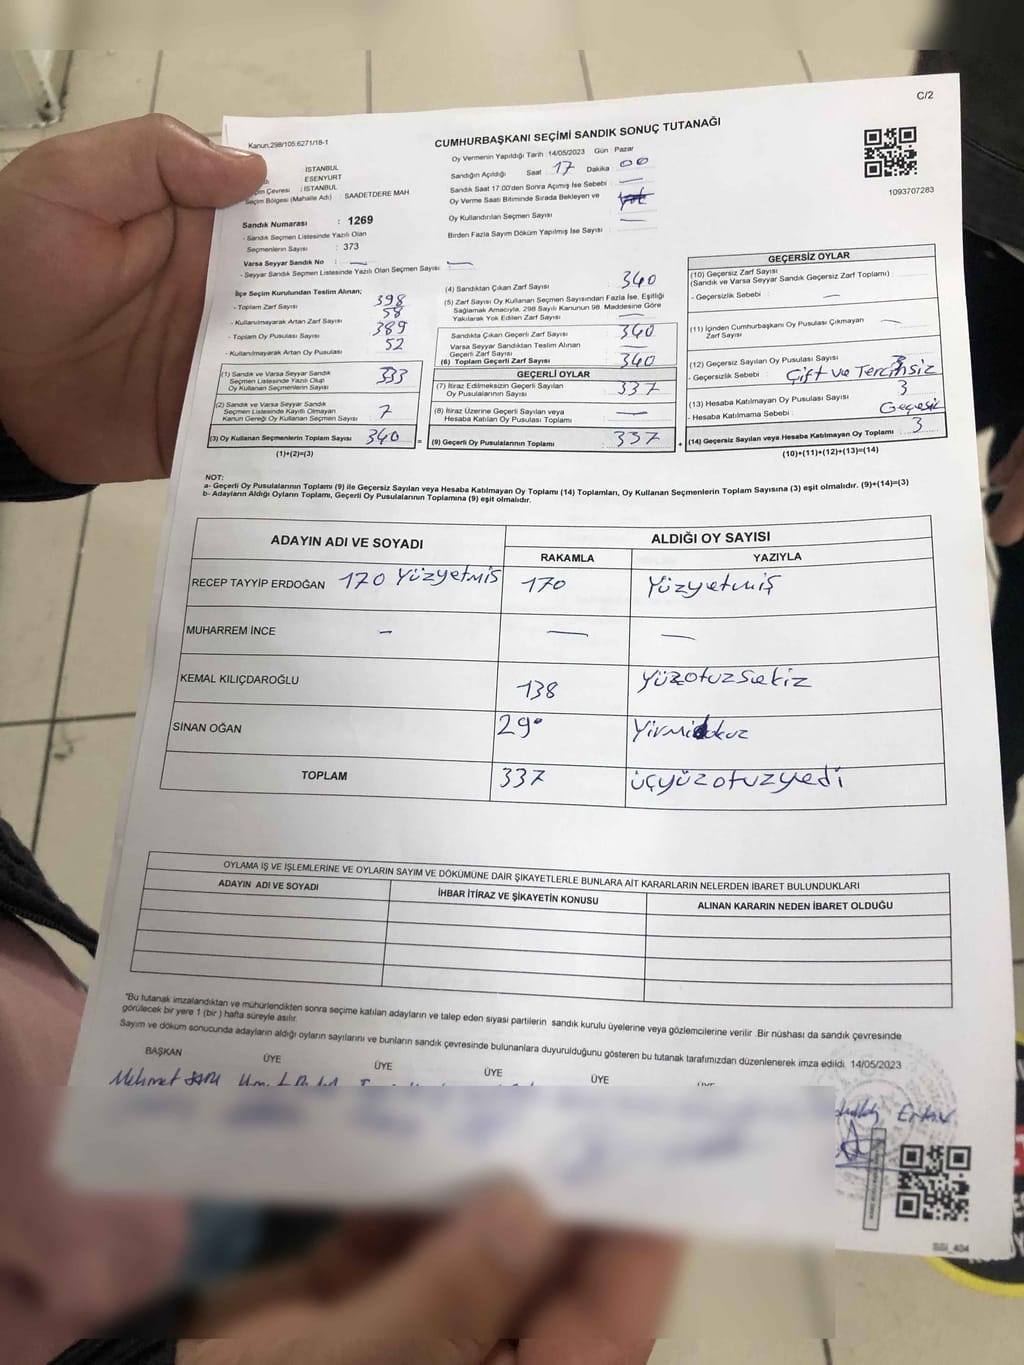 C/2
Kanun.298/105:6271/18-1
CUMHURBAŞKANI SEÇİMİ SANDIK SONUÇ TUTANAĞI
1093707283
İSTANBUL
ESENYURT
Çevresi : İSTANBUL
Seçim Bölgesi (Mahalle Adı) : SAADETDERE MAH.
Sandık Numarası : 1269
- Sandık Seçmen Listesinde Yazılı Olan
Seçmenlerin Sayısı : 373
Varsa Seyyar Sandık No : —
- Seyyar Sandık Seçmen Listesinde Yazılı Olan Seçmen Sayısı : —
Oy Vermenin Yapıldığı Tarih :14/05/2023 Gün : Pazar
Sandığın Açıldığı Saat : 17 Dakika : 00
Sandık Saat 17:00'den Sonra Açımış İse Sebebi : —
Oy Verme Saati Bitiminde Sırada Bekleyen ve
Oy Kullandırılan Seçmen Sayısı : —
Birden Fazla Sayım Döküm Yapılmış İse Sayısı :
İlçe Seçim Kurulundan Teslim Alınan;
- Toplam Zarf Sayısı : 398
- Kullanılmayarak Artan Zarf Sayısı : 58
- Toplam Oy Pusulası Sayısı : 389
- Kullanılmayarak Artan Oy Pusulası : 52
(1) Sandık ve Varsa Seyyar Sandık
Seçmen Listesinde Yazılı Olup
Oy Kullanan Seçmenlerin Sayısı : 333
(2) Sandık ve Varsa Seyyar Sandık
Seçmen Listesinde Kayıtlı Olmayan
Kanun Gereği Oy Kullanan Seçmen Sayısı : 7
(3) Oy Kullanan Seçmenlerin Toplam Sayısı : 340 =
(1)+(2)=(3)
(4) Sandıktan Çıkan Zarf Sayısı : 340
(5) Zarf Sayısı Oy Kullanan Seçmen Sayısından Fazla İse, Eşitliği
Sağlamak Amacıyla, 298 Sayılı Kanunun 98. Maddesine Göre
Yakılarak Yok Edilen Zarf Sayısı : —
Sandıkta Çıkan Geçerli Zarf Sayısı : 340
Varsa Seyyar Sandıktan Teslim Alınan
Geçerli Zarf Sayısı : —
(6) Toplam Geçerli Zarf Sayısı : 340
GEÇERLİ OYLAR
(7) İtiraz Edilmeksizin Geçerli Sayılan
Oy Pusulalarının Sayısı : 337
(8) İtiraz Üzerine Geçerli Sayılan veya
Hesaba Katılan Oy Pusulası Toplamı : —
(9) Geçerli Oy Pusulalarının Toplamı : 337 +
GEÇERSİZ OYLAR
(10) Geçersiz Zarf Sayısı
(Sandık ve Varsa Seyyar Sandık Geçersiz Zarf Toplamı) :
- Geçersizlik Sebebi : —
(11) İçinden Cumhurbaşkanı Oy Pusulası Çıkmayan
Zarf Sayısı : —
(12) Geçersiz Sayılan Oy Pusulası Sayısı : 3
- Geçersizlik Sebebi : Çift ve Tercihsiz
(13) Hesaba Katılmayan Oy Pusulası Sayısı : 3
- Hesaba Katılmama Sebebi : Geçesiz
(14) Geçersiz Sayılan veya Hesaba Katılmayan Oy Toplamı : 3
(10)+(11)+(12)+(13)=(14)
NOT:
a- Geçerli Oy Pusulalarının Toplamı (9) ile Geçersiz Sayılan veya Hesaba Katılmayan Oy Toplamı (14) Toplamları, Oy Kullanan Seçmenlerin Toplam Sayısına (3) eşit olmalıdır. (9)+(14)=(3)
b- Adayların Aldığı Oyların Toplamı, Geçerli Oy Pusulalarının Toplamına (9) eşit olmalıdır.
ADAYIN ADI VE SOYADI ALDIĞI OY SAYISI
RAKAMLA YAZIYLA
RECEP TAYYİP ERDOĞAN 170 Yüzyetmiş 170 Yüzyetmiş
MUHARREM İNCE — — —
KEMAL KILIÇDAROĞLU 138 Yüzotuzsekiz
SİNAN OĞAN 29 Yirmidokuz
TOPLAM 337 üçyüzotuzyedi
OYLAMA İŞ VE İŞLEMLERİNE VE OYLARIN SAYIM VE DÖKÜMÜNE DAİR ŞİKAYETLERLE BUNLARA AİT KARARLARIN NELERDEN İBARET BULUNDUKLARI
ADAYIN ADI VE SOYADI İHBAR İTİRAZ VE ŞİKAYETİN KONUSU ALINAN KARARIN NEDEN İBARET OLDUĞU
"Bu tutanak imzalandıktan ve mühürlendikten sonra seçime katılan adayların ve talep eden siyasi partilerin sandık kurulu üyelerine veya gözlemcilerine verilir .Bir nüshası da sandık çevresinde
görülecek bir yere 1 (bir ) hafta süreyle asılır.
Sayım ve döküm sonucunda adayların aldığı oyların sayılarını ve bunların sandık çevresinde bulunanlara duyurulduğunu gösteren bu tutanak tarafımızdan düzenlenerek imza edildi. 14/05/2023
BAŞKAN ÜYE ÜYE ÜYE ÜYE
Mehmet